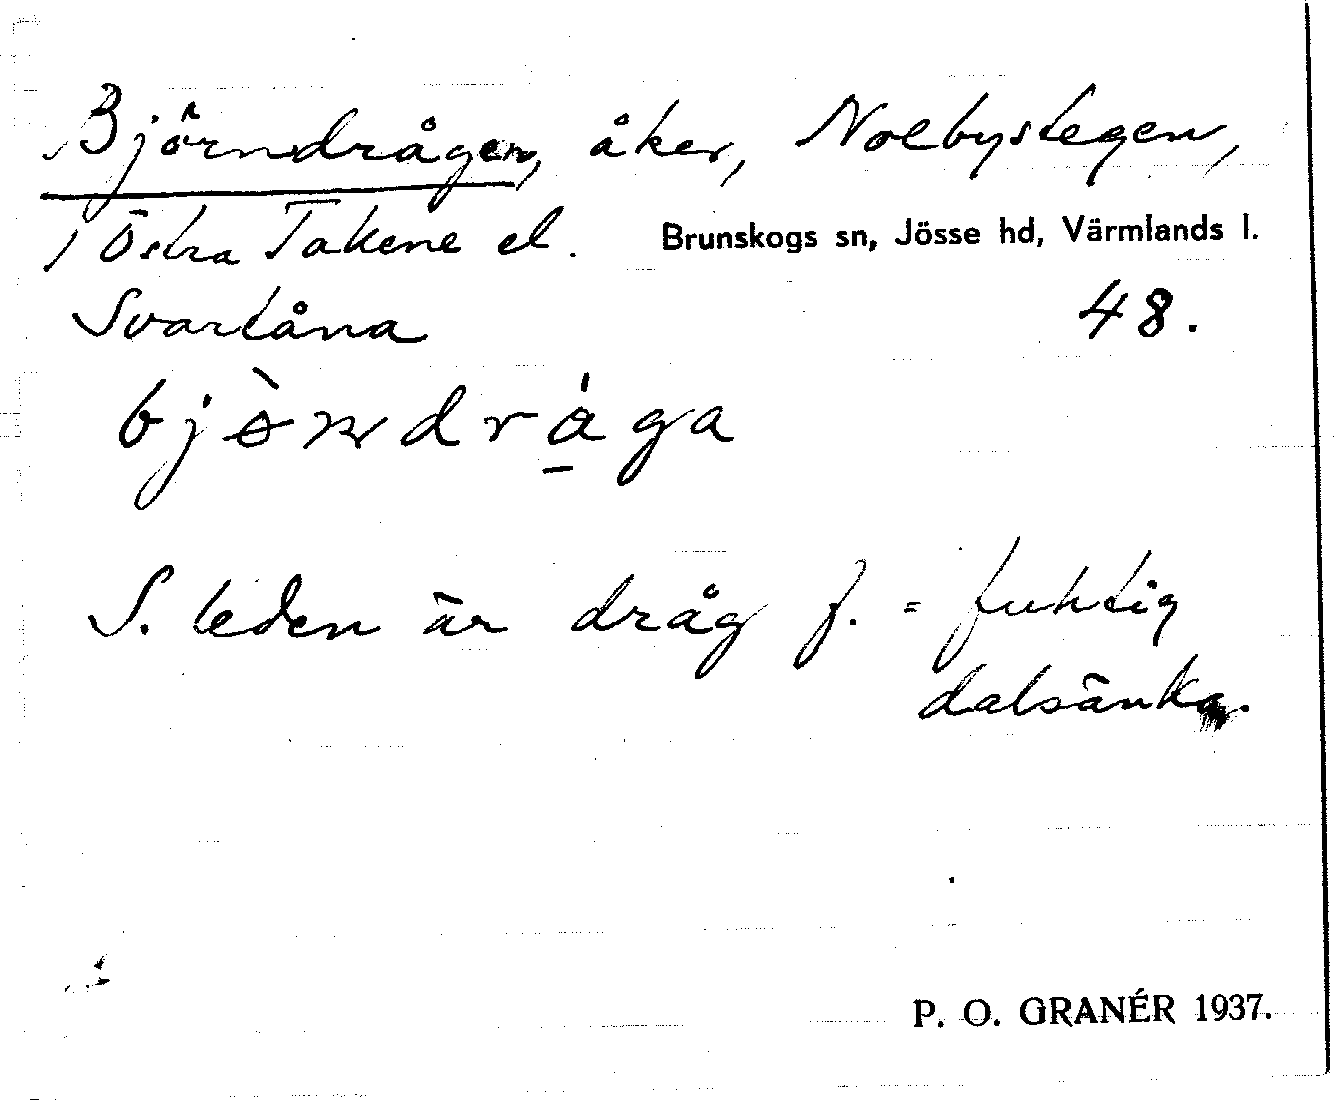 Björndrågen, åker, Nolbystegen,
i Östra Takene el. Brunskogs sn, Jösse hd, Värmlands l.
Svartåna 48.
bjòndrága
S. leden är dråg f. = fuktig
dalsänka.
P. O. GRANÉR 1937.